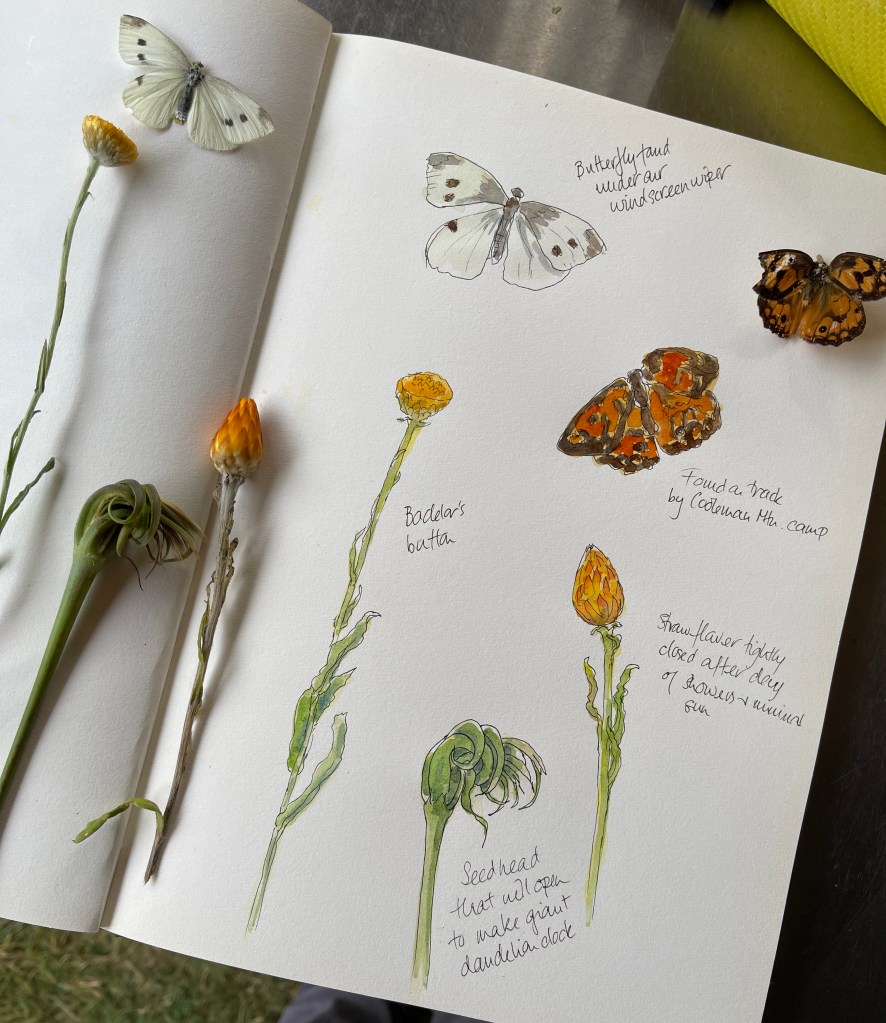 Butterfly found
under our
windscreen wiper
Found on track
by Cooleman Mtn. camp
Bachelor's
button
Strawflower tightly
closed after day
of showers + minimal
sun
Seedhead
that will open
to make giant
dandelion clock